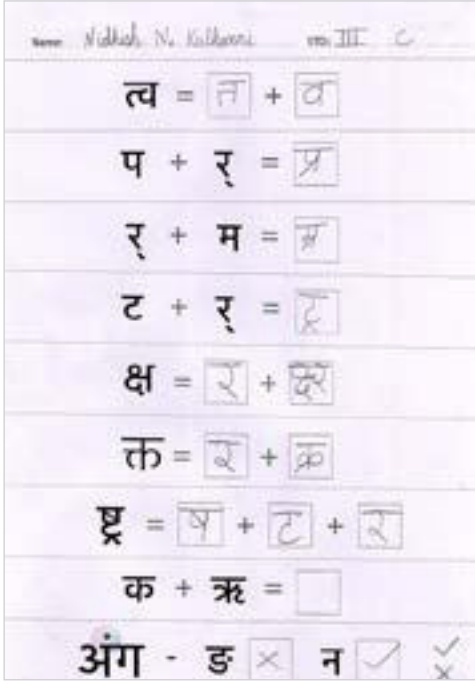 Name: Nidhish N. Kulkarni STD: III C
त्व = त + व
प + र् = प्र
र् + म = म्र
ट + र् = ट्र
क्ष = र +
क्त = र + क्र
ष्ट्र = ष + ट + र
क + ऋ =
अंग - ङ × न ✓ ✓
×